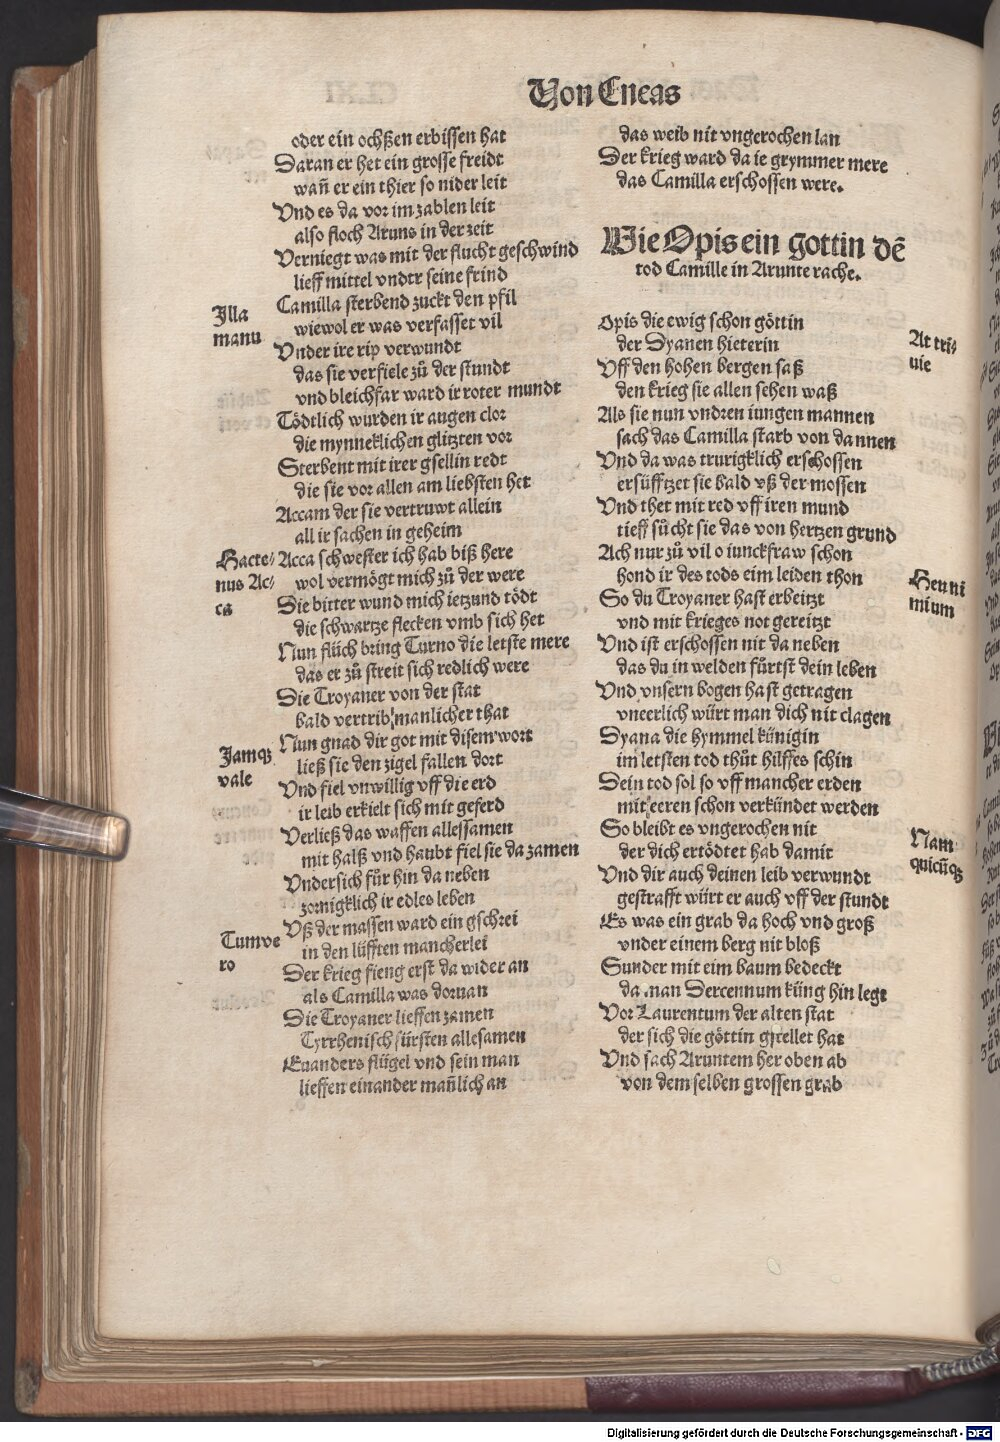 Von Eneas
oder ein ochßen erbissen hat
Daran er het ein grosse freidt
wañ er ein thier so nider leit
Vnd es da vor im zablen leit
also floch Aruns in der zeit
Verniegt was mit der flucht geschwind
lieff mittel vndtr seine frind
Illa
manu
Camilla sterbend zuckt den pfil
wiewol er was verfasset vil
Vnder ire rip verwundt
das sie verfiele zů der stundt
vnd bleichfar ward ir roter mundt
Tödtlich wurden ir augen clor
die mynneklichen glitzten vor
Sterbent mit irer gsellin redt
die sie vor allen am liebsten het
Accam der sie vertruwt allein
all ir sachen in geheim
Hacte⸗
nus Ac⸗
ca
Acca schwester ich hab biß here
wol vermögt mich zů der were
Die bitter wund mich ietzund tödt
die schwartze flecken vmb sich het
Nun flüch bring Turno die letste mere
das er zů streit sich redlich were
Die Troyaner von der stat
bald vertrib manlicher that
Jamqꝫ
vale
Nun gnad dir got mit disem wort
ließ sie den zigel fallen dort
Vnd fiel vnwillig vff die erd
ir leib erkielt sich mit geferd
Verließ das waffen allessamen
mit halß vnd haubt fiel sie da zamen
Vndersich für hin da neben
zornigklich ir edles leben
Tumve
ro
Vß der massen ward ein gschrei
in den lüfften mancherlei
Der krieg fieng erst da wider an
als Camilla was doruan
Die Troyaner lieffen zamen
Tyrrhenisch fürsten allesamen
Euanders flügel vnd sein man
lieffen einander mañlich an
das weib nit vngerochen lan
Der krieg ward da ie grymmer mere
das Camilla erschossen were.
Wie Opis ein gottin dē
tod Camille in Arunte rache.
Opis die ewig schon göttin
der Dyanen hieterin
At tri⸗
uie
Vff den hohen bergen saß
den krieg sie allen sehen waß
Als sie nun vndren iungen mannen
sach das Camilla starb von dannen
Vnd da was trurigklich erschossen
ersüfftzet sie bald vß der mossen
Vnd thet mit red vff iren mund
tieff sůcht sie das von hertzen grund
Ach nur zů vil o iunckfraw schon
hond ir des tods eim leiden thon
Heu ni
mium
So du Troyaner hast erbeitzt
vnd mit krieges not gereitzt
Vnd ist erschossen nit da neben
das du in welden fůrtst dein leben
Vnd vnsern bogen hast getragen
vneerlich würt man dich nit clagen
Dyana die hymmel künigin
im letsten tod thůt hilffes schin
Dein tod sol so vff mancher erden
mit eeren schon verkündet werden
So bleibt es vngerochen nit
der dich ertödtet hab damit
Nam
quicūqꝫ
Vnd dir auch deinen leib verwundt
gestrafft würt er auch vff der stundt
Es was ein grab da hoch vnd groß
vnder einem berg nit bloß
Sunder mit eim baum bedeckt
da man Dercennum küng hin legt
Vor Laurentum der alten stat
der sich die göttin gstellet hat
Vnd sach Aruntem her oben ab
von dem selben grossen grab
Digitalisierung gefördert durch die Deutsche Forschungsgemeinschaft - DFG